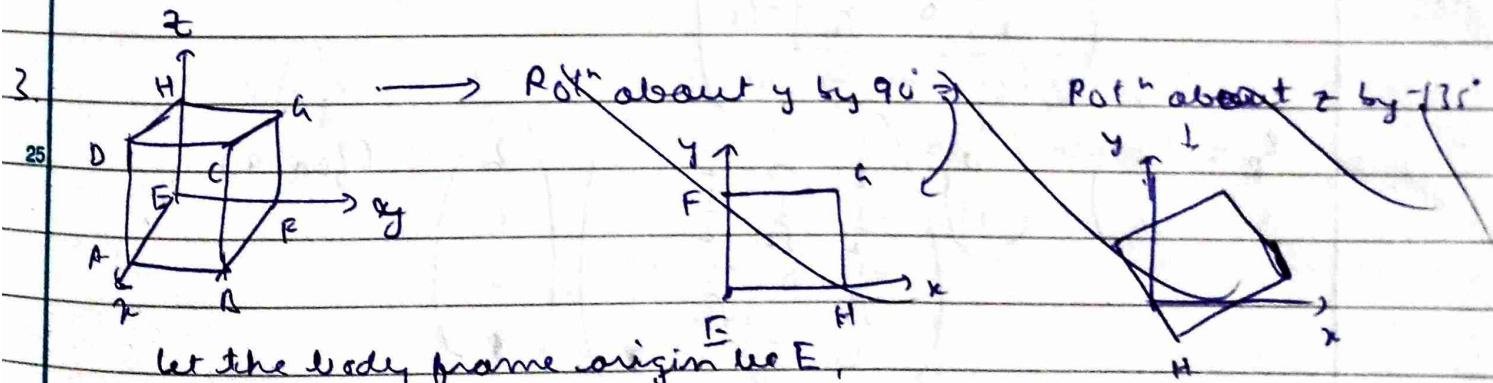 3.
25
Z
H
G
D
C
E
F
A
B
x
y
→ Rotⁿ about y by 90°
y
F
G
E
H
x
Rotⁿ about z by -135°
y
H
x
let the body frame origin be E,